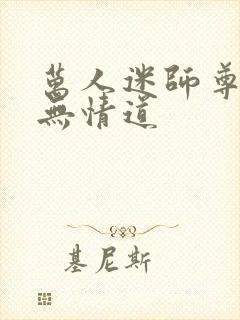 萬人迷師尊
無情道
基尼斯